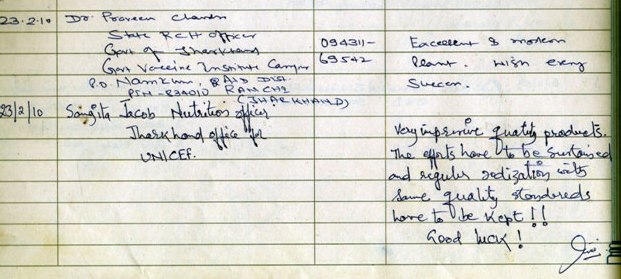 23.2.10 Dr. Praveen Chandra
State RCH Officer
Govt of Jharkhand 094311- Excellent & modern
Govt Vaccine Institute Campus 69542 Plant. Wish every
P.O Namkum, RANCHI
PIN-834010 (JHARKHAND) Success.
23/2/10 Sangita Jacob Nutrition officer
Jharkhand office for Very impressive quality products.
UNICEF. The efforts have to be sustained
and regular with
same quality standereds
have to be kept!!
Good luck!